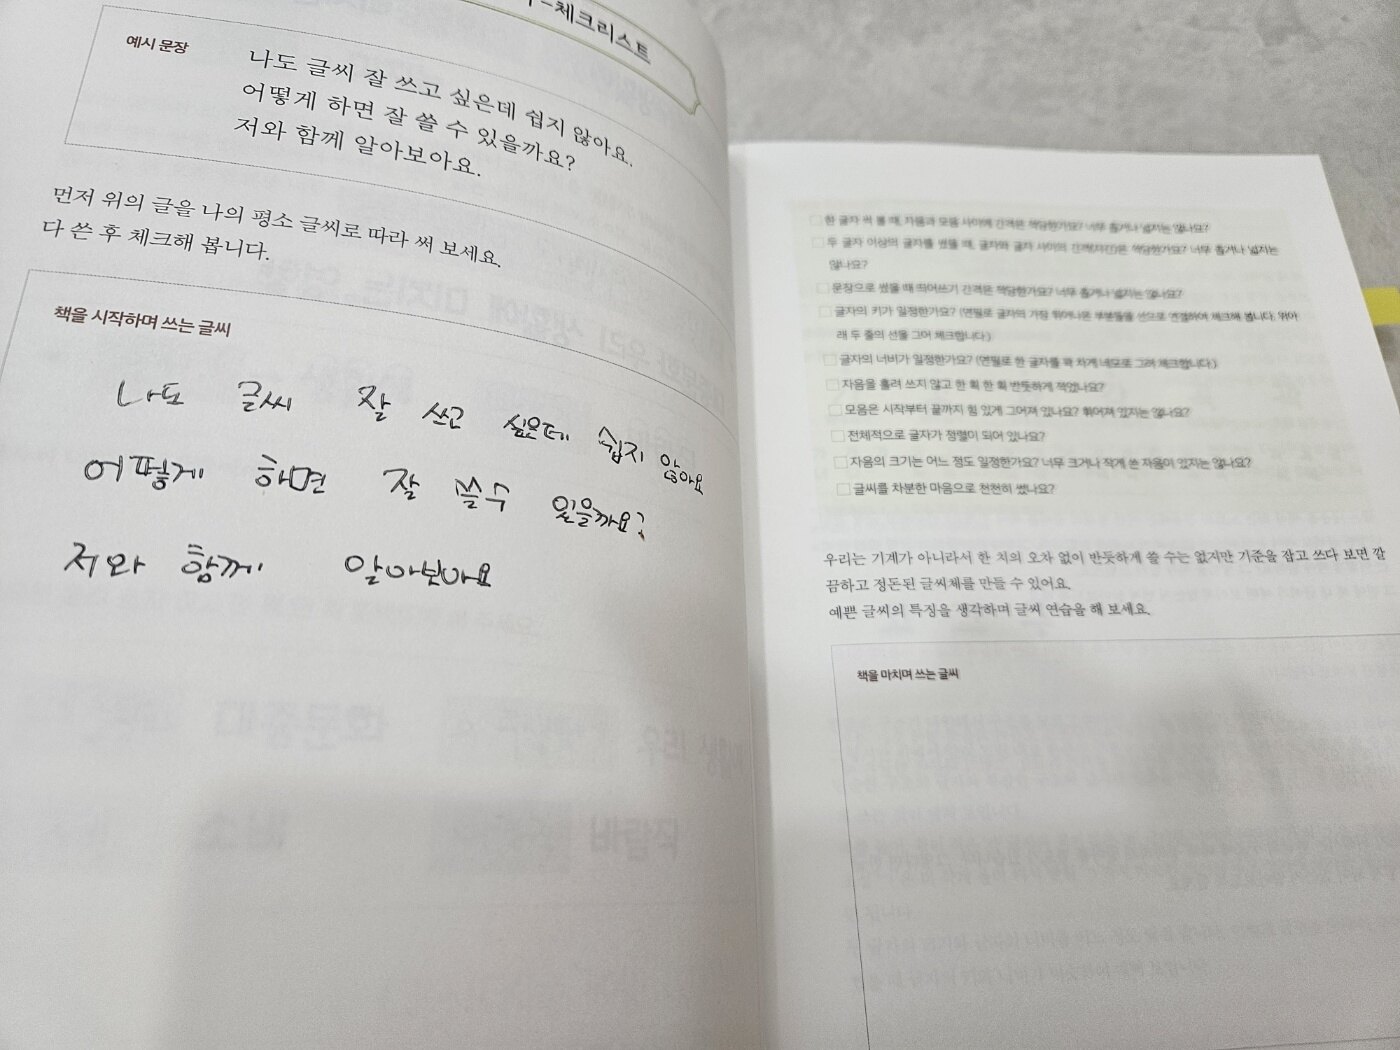 -체크리스트
예시 문장
나도 글씨 잘 쓰고 싶은데 쉽지 않아요.
어떻게 하면 잘 쓸 수 있을까요?
저와 함께 알아보아요.
먼저 위의 글을 나의 평소 글씨로 따라 써 보세요.
다 쓴 후 체크해 봅니다.
책을 시작하며 쓰는 글씨
나도 글씨 잘 쓰고 싶은데 쉽지 않아요
어떻게 하면 잘 쓸수 있을까요?
저와 함께 알아보아요
한 글자 써 볼 때, 자음과 모음 사이에 간격은 적당한가요? 너무 좁거나 넓지는 않나요?
두 글자 이상의 글자를 썼을 때, 글자와 글자 사이의 간격(자간)은 적당한가요? 너무 좁거나 넓지는
않나요?
문장으로 썼을 때 띄어쓰기 간격은 적당한가요? 너무 좁거나 넓지는 않나요?
글자의 키가 일정한가요? (연필로 글자의 가장 튀어나온 부분들을 선으로 연결하여 체크해 봅니다. 위아
래 두 줄의 선을 그어 체크합니다.)
글자의 너비가 일정한가요? (연필로 한 글자를 꽉 차게 네모로 그려 체크합니다.)
자음을 흘려 쓰지 않고 한 획 한 획 반듯하게 적었나요?
모음은 시작부터 끝까지 힘 있게 그어져 있나요? 휘어져 있지는 않나요?
전체적으로 글자가 정렬이 되어 있나요?
자음의 크기는 어느 정도 일정한가요? 너무 크거나 작게 쓴 자음이 있지는 않나요?
글씨를 차분한 마음으로 천천히 썼나요?
우리는 기계가 아니라서 한 치의 오차 없이 반듯하게 쓸 수는 없지만 기준을 잡고 쓰다 보면 깔
끔하고 정돈된 글씨체를 만들 수 있어요.
예쁜 글씨의 특징을 생각하며 글씨 연습을 해 보세요.
책을 마치며 쓰는 글씨